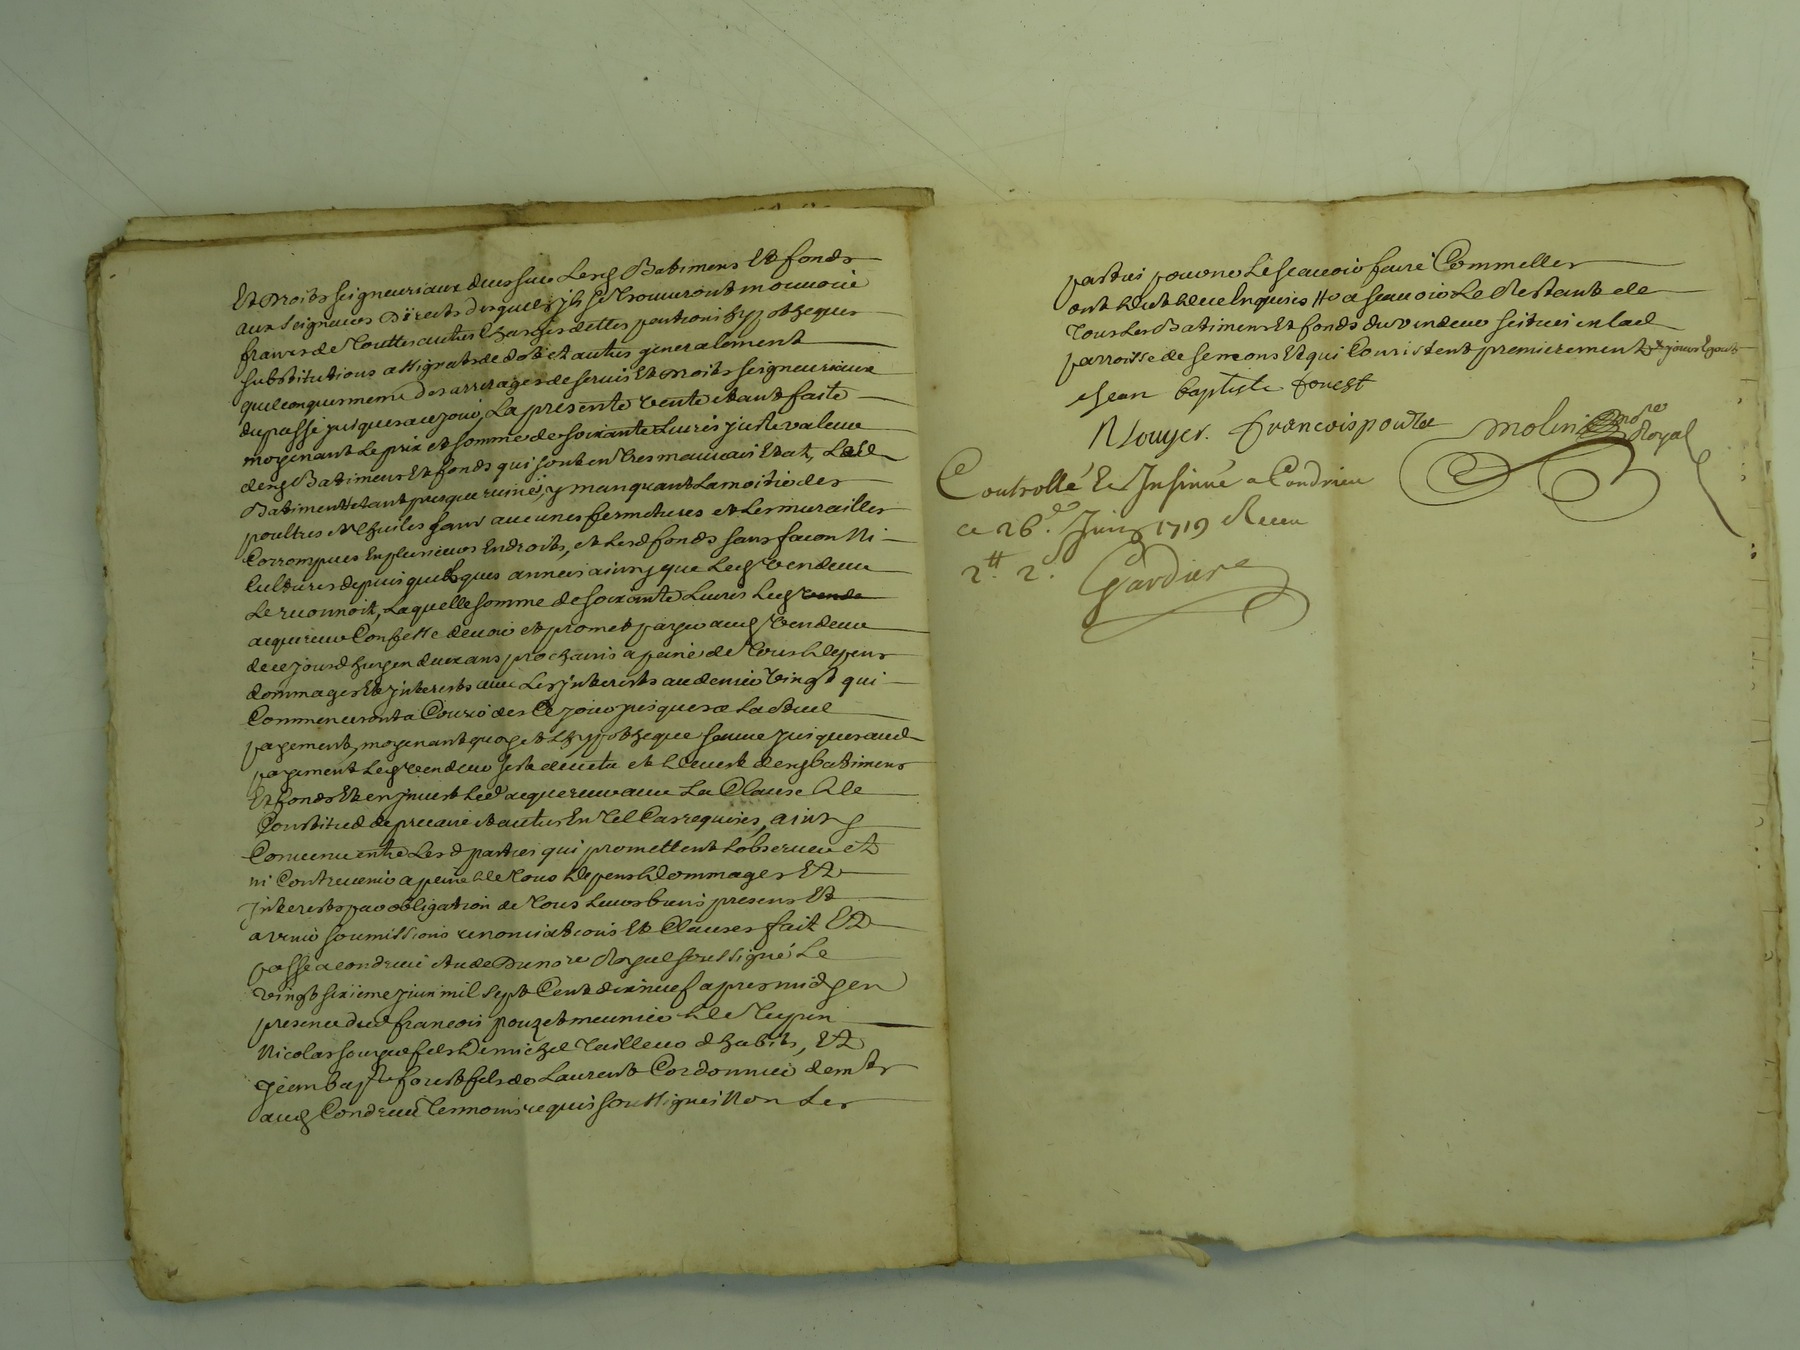 Et droits seigneuriaux deus sur lesd Batimens Et fonds
aux seigneurs directs desquels jls se trouveront mouvoir
francs de touttes autres charges dettes pentions hypotheques
substitutions assignats de dote et autres generalement
quelconques meme des arrerages de servis Et droits seigneuriaux
du passé jusques a ce jour, La presente vente etant faite
moyenant le prix et somme de soixante Livres juste valeur
desd Batimens Et fonds qui sont en tres mauvais Etat, Led
Batiment etant presque ruiné, y manquant La moitié des
poultres et thuiles sans aucunes fermetures et Les murailles
Corrompues En plusieurs Endroits, et Lesd fonds sans facon Ni
Cultures depuis quelques années ainsy que Led vendeur
Le reconnoit, Laquelle somme de soixante Livres Led vende
acquereur Confesse devoir et promet payer aud vendeur
de ce jourdhuy en deux ans prochains a peine de tous depens
dommages Et jnterests avec Les jnterests au denier vingt qui
Commenceront a Courir des Ce jour jusques a Lactuel
payement, moyenant quoy et Lhypotheque sauve jusques aud
payement Led vendeur sest devetu et devest desd batimens
Et fonds Et en jnvest Led acquereur avec La Clause de
Constitut de precaire et autres En tel Cas requises, ainsy
Convenu entre Lesd parties qui promettent Lobserver et
ni Contrevenir a peine de tous depens dommages Et
Jnterests par obligation de tous Leurs biens presens Et
avenir soumissions renonciations Et Clauses fait Et
passé a condrieu etude du nore Royal soussigné Le
vingt sixieme juin mil sept Cent dix neuf apres midy en
presence dud francois pouzet meunier de Tupin
Nicolas fils de michel Tailleur dhabits, Et
Jean bapte forest fils de Laurent Cordonnier demts
aud Condrieu Temoins requis soussignés Non Les
parties pour ne Le scavoir faire Comme elles
ont dit de ce Enquises // a scavoir Le Restant de
tous Les Batimens Et fonds du vendeur scitués en lad
parroisse de semons Et qui Consistent premierement
Jean baptiste forest
N Francois
Molin nore Royal
Controllé Et Insinué a Condrieu
ce 26e Juin 1719 Receu
2tt. 2s.
Gardier